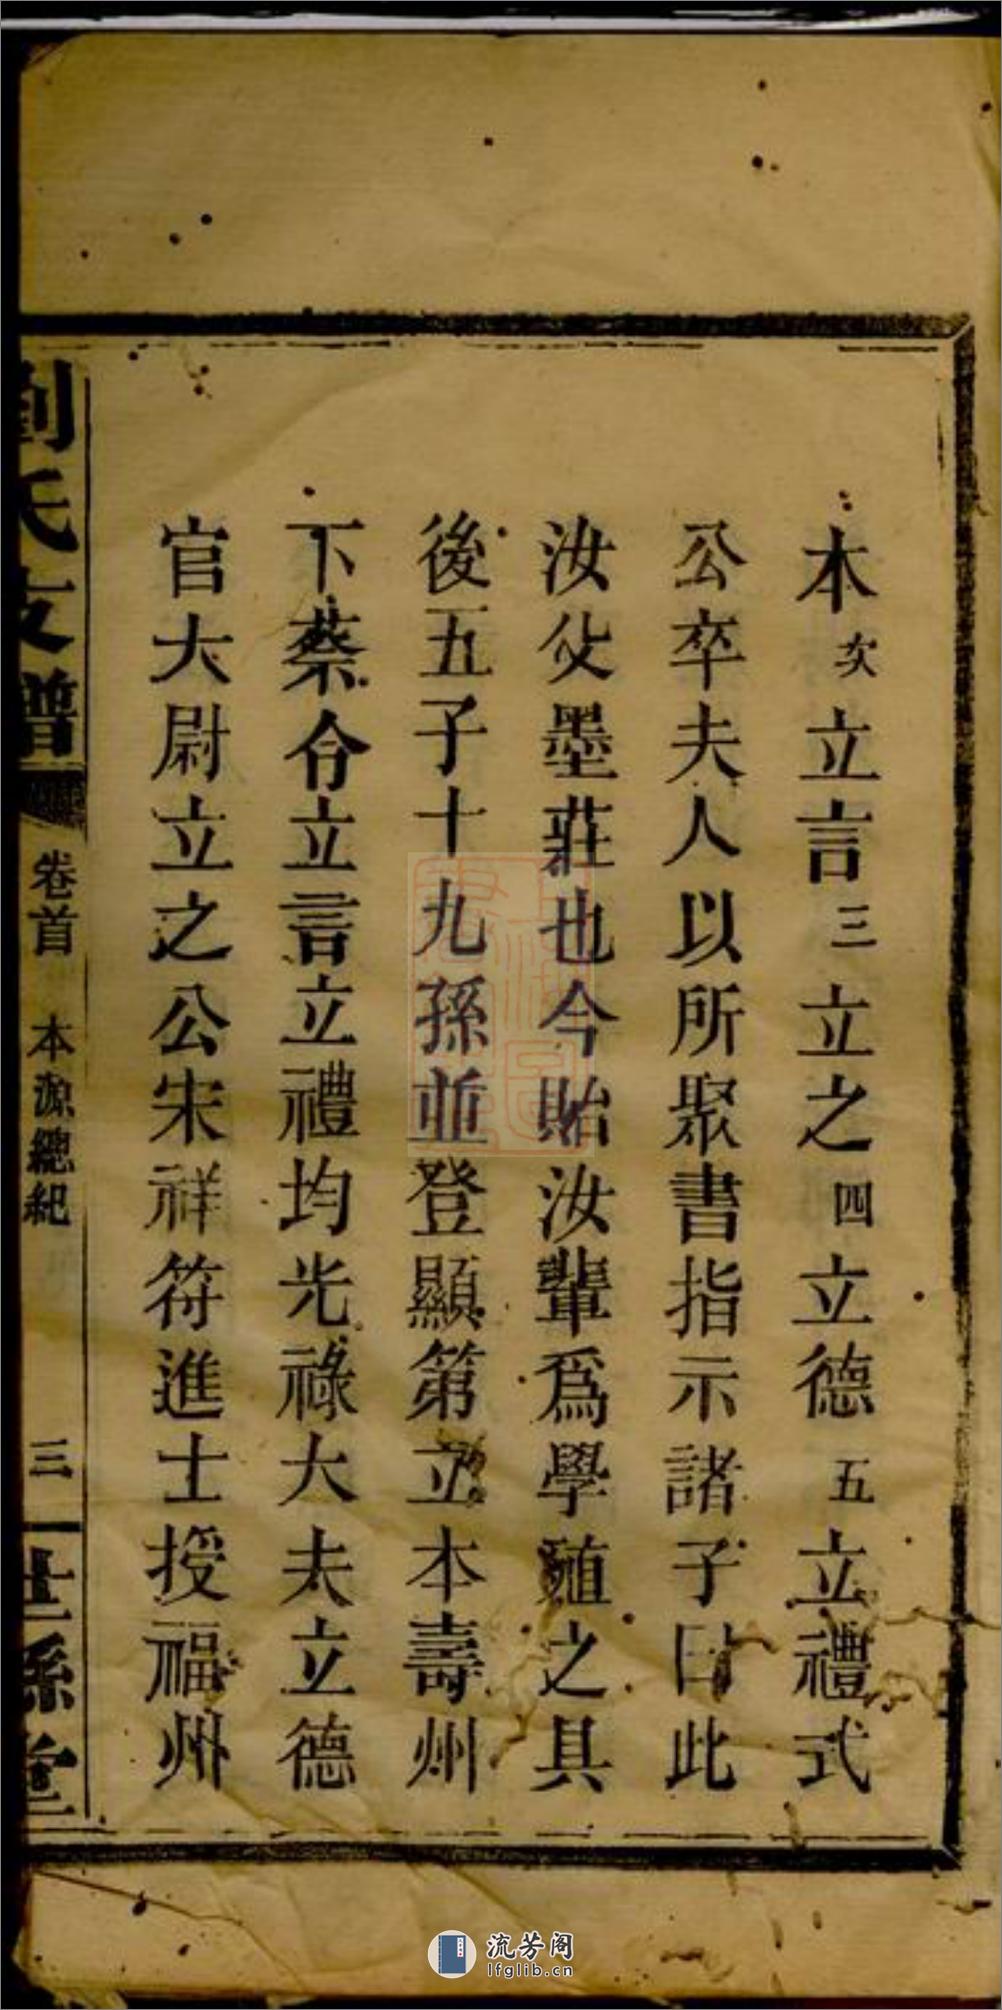 本次立言三立之四立德五立禮式
公卒夫人以所聚書指示諸子曰此
汝父墨莊也今貽汝輩爲學殖之具
後五子十九孫並登顯第立本壽州
下蔡令立言立禮均光祿大夫立德
官大尉立之公宋祥符進士授福州
劉氏支譜
卷首
本源總紀
三
流芳阁
lfglib.cn